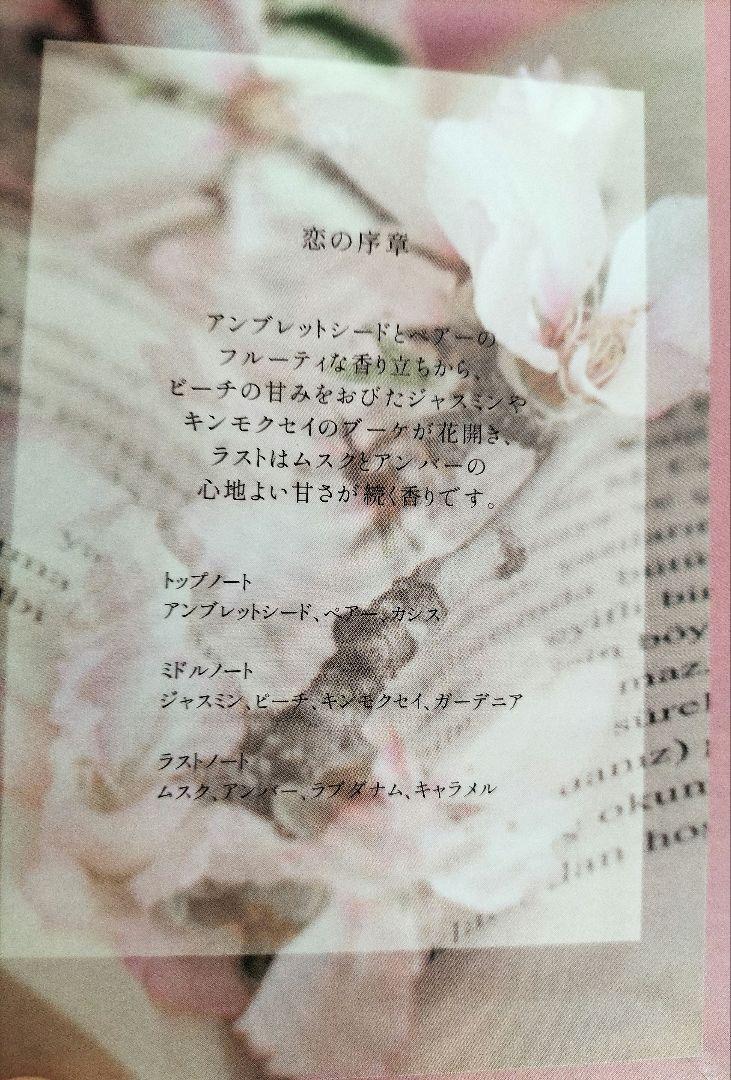 恋の序章
アンブレットシードとペアーの
フルーティな香り立ちから、
ピーチの甘みをおびたジャスミンや
キンモクセイのブーケが花開き、
ラストはムスクとアンバーの
心地よい甘さが続く香りです。
トップノート
アンブレットシード、ペアー、カシス
ミドルノート
ジャスミン、ピーチ、キンモクセイ、ガーデニア
ラストノート
ムスク、アンバー、ラブダナム、キャラメル
bütü
eyifli bir
maz.
sürel
okun
lan hoş